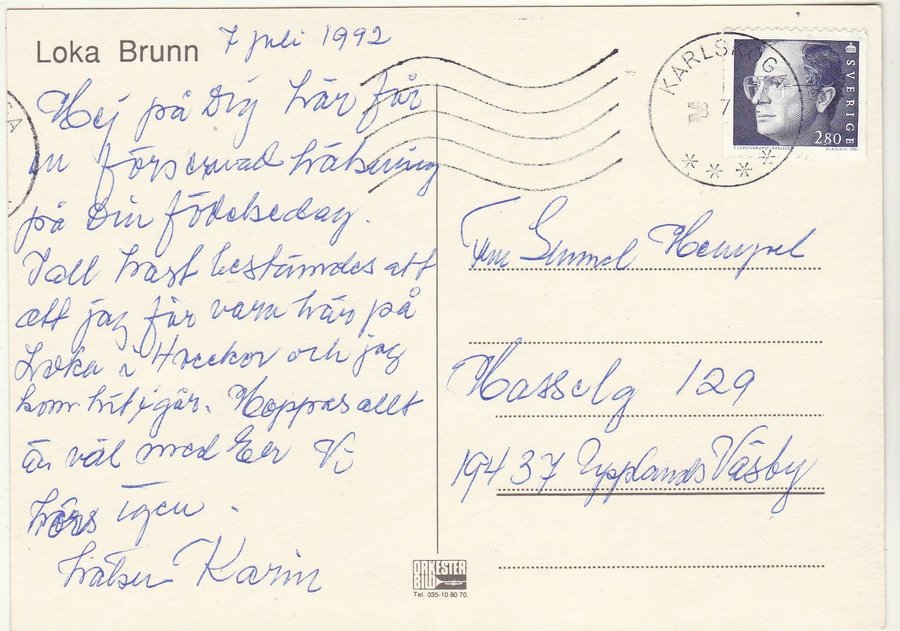 Loka Brunn 7 juli 1992
Hej på Dig här får
en försenad hälsning
på Din födelsedag.
I all hast bestämdes att
att jag får vara här på
Loka i 4 veckor och jag
kom hit igår. Hoppas allt
är väl med Er Vi
hörs igen.
hälsn Karin
KARLSKOGA
7
SVERIGE
280
Fru Gunnel Hempel
Hasselg 129
194 37 Upplands Väsby
ORKESTER
BILD
Tel. 035-10 80 70.